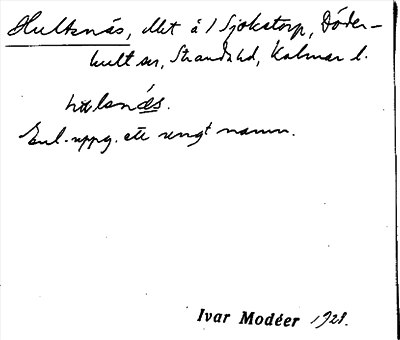 Hultsnäs, lht å 1 Sjökstorp, Döder-
hult sn, Stranda hd, Kalmar l.
hultsnäs.
Enl. uppg. ett ungt namn.
Ivar Modéer 1928.